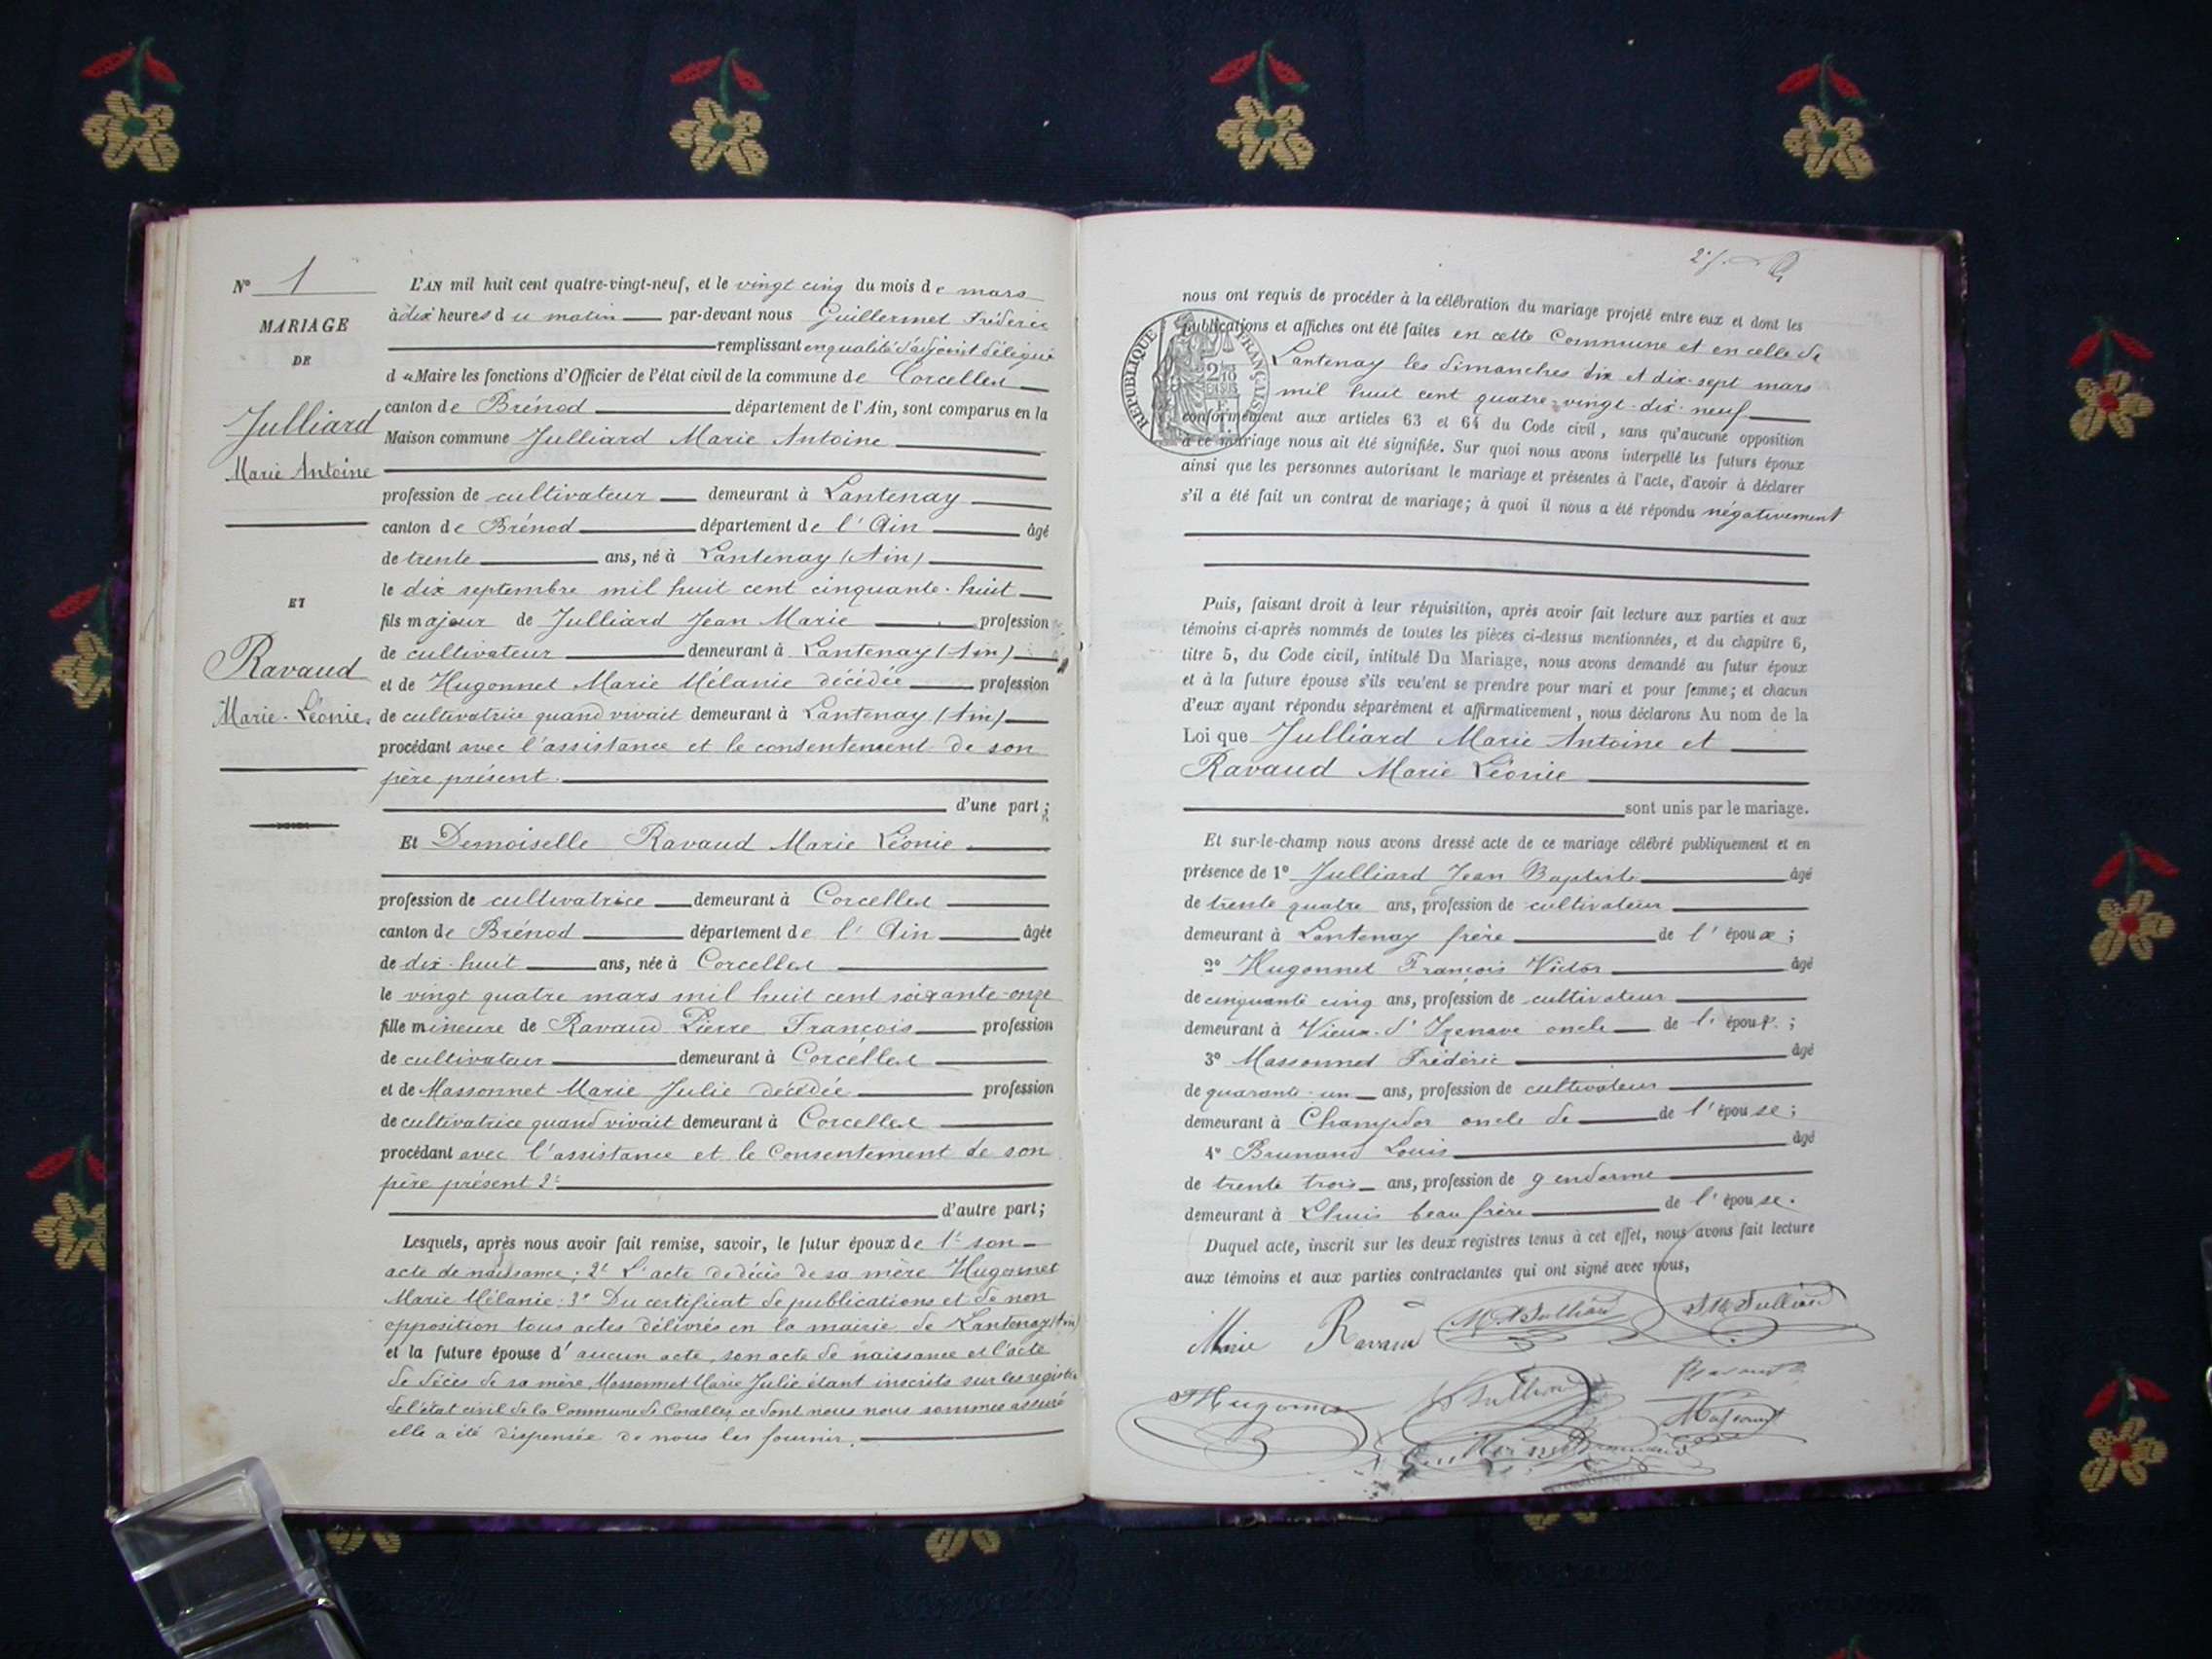 N° 1
MARIAGE
DE
Julliard
Marie Antoine
ET
Ravaud
Marie-Léonie.
L'AN mil huit cent quatre-vingt-neuf, et le vingt cinq du mois de mars
à dix heures du matin par-devant nous Guillermet Fréderic
remplissant en qualité d'adjoint délégué
du Maire les fonctions d'Officier de l'état civil de la commune de Corcelles
canton de Brénod département de l'Ain, sont comparus en la
Maison commune Julliard Marie Antoine
profession de cultivateur demeurant à Lantenay
canton de Brénod département de l'Ain âgé
de trente ans, né à Lantenay (Ain)
le dix septembre mil huit cent cinquante-huit
fils majeur de Julliard Jean Marie profession
de cultivateur demeurant à Lantenay (Ain)
et de Hugonnet Marie Mélanie décédée profession
de cultivatrice quand vivait demeurant à Lantenay (Ain)
procédant avec l'assistance et le consentement de son
père présent.
d'une part;
Et Demoiselle Ravaud Marie Léonie
profession de cultivatrice demeurant à Corcelles
canton de Brénod département de l'Ain âgée
de dix-huit ans, née à Corcelles
le vingt quatre mars mil huit cent soixante-onze
fille mineure de Ravaud Pierre François profession
de cultivateur demeurant à Corcelles
et de Massonnet Marie Julie décédée profession
de cultivatrice quand vivait demeurant à Corcelles
procédant avec l'assistance et le Consentement de son
père présent
d'autre part;
Lesquels, après nous avoir fait remise, savoir, le futur époux de 1° son
acte de naissance; 2° L'acte de décès de sa mère Hugonnet
Marie Mélanie; 3° Du certificat de publications et de non
opposition tous actes délivrés en la mairie de Lantenay (Ain)
et la future épouse d'aucun acte, son acte de naissance et l'acte
de décès de sa mère, Massonnet Marie Julie étant inscrits sur les registres
de l'état civil de la Commune de Corcelles, ce dont nous nous sommes assuré
elle a été dispensée de nous les fournir.
nous ont requis de procéder à la célébration du mariage projeté entre eux et dont les
publications et affiches ont été faites en cette Commune et en celle de
Lantenay les dimanches dix et dix-sept mars
mil huit cent quatre-vingt-dix-neuf
RÉPUBLIQUE FRANÇAISE
conformément aux articles 63 et 64 du Code civil, sans qu'aucune opposition
à ce mariage nous ait été signifiée. Sur quoi nous avons interpellé les futurs époux
ainsi que les personnes autorisant le mariage et présentes à l'acte, d'avoir à déclarer
s'il a été fait un contrat de mariage; à quoi il nous a été répondu négativement
Puis, faisant droit à leur réquisition, après avoir fait lecture aux parties et aux
témoins ci-après nommés de toutes les pièces ci-dessus mentionnées, et du chapitre 6,
titre 5, du Code civil, intitulé Du Mariage, nous avons demandé au futur époux
et à la future épouse s'ils veulent se prendre pour mari et pour femme; et chacun
d'eux ayant répondu séparément et affirmativement, nous déclarons Au nom de la
Loi que Julliard Marie Antoine et
Ravaud Marie Léonie
sont unis par le mariage.
Et sur-le-champ nous avons dressé acte de ce mariage célébré publiquement et en
présence de 1° Julliard Jean Baptiste âgé
de trente quatre ans, profession de cultivateur
demeurant à Lantenay frère de l'époux;
2° Hugonnet François Victor âgé
de cinquante cinq ans, profession de cultivateur
demeurant à Vieux-d'Izenave oncle de l'époux;
3° Massonnet Frédéric âgé
de quarante-un ans, profession de cultivateur
demeurant à Champdor oncle de de l'épouse;
4° Brunand Louis âgé
de trente trois ans, profession de gendarme
demeurant à Lhuis beau frère de l'épouse.
Duquel acte, inscrit sur les deux registres tenus à cet effet, nous avons fait lecture
aux témoins et aux parties contractantes qui ont signé avec nous,
Marie Ravaud M A Julliard J M Julliard
Hugonnet Julliard